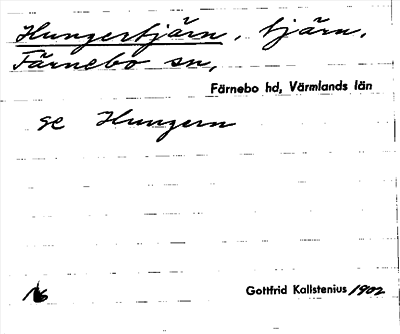 Hungertjärn, tjärn,
Färnebo sn,
Färnebo hd, Värmlands län
se Hungern
16
Gottfrid Kallstenius 1902